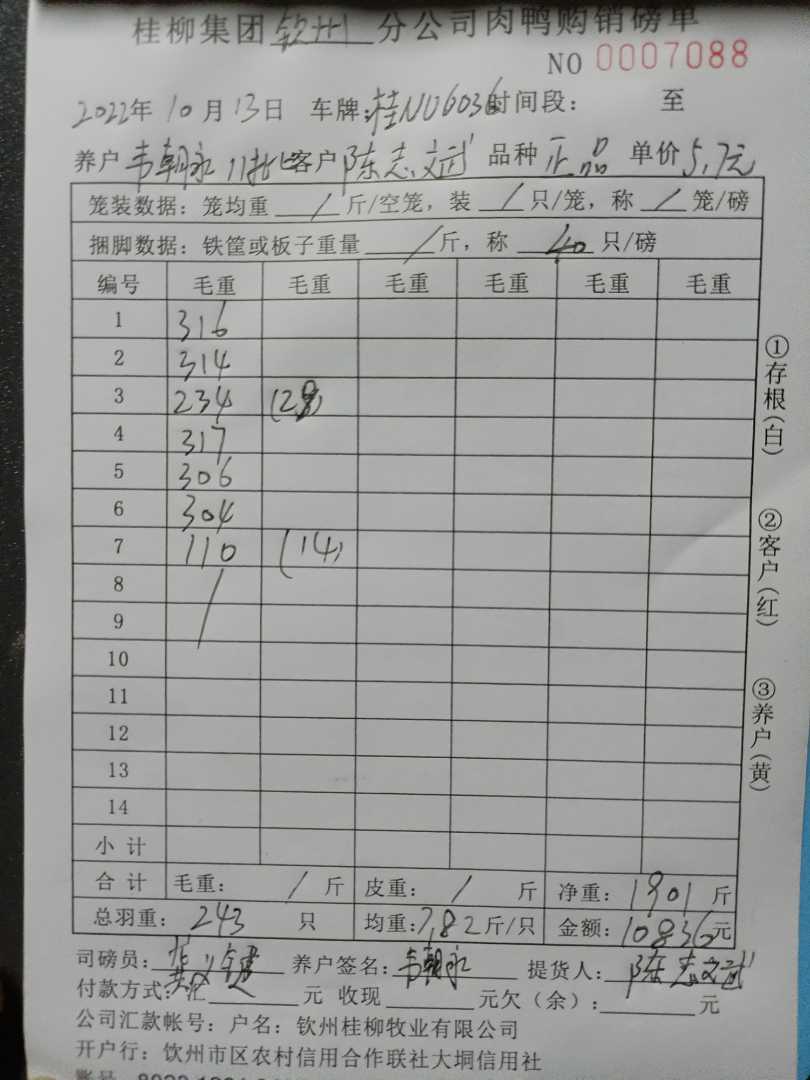 桂柳集团钦州分公司肉鸭购销磅单
NO 0007088
2022年10月13日 车牌:桂NU6036 时间段: 至
养户 韦朝永 11批 客户 陈志文武 品种 正品 单价 5.7元
笼装数据: 笼均重 / 斤/空笼, 装 / 只/笼, 称 / 笼/磅
捆脚数据: 铁筐或板子重量 / 斤, 称 40 只/磅
编号 毛重 毛重 毛重 毛重 毛重 毛重
1 316
2 314
3 234 (29)
4 317
5 306
6 304
7 110 (14)
8 /
9
10
11
12
13
14
小计
合计 毛重: / 斤 皮重: / 斤 净重: 1901 斤
总羽重: 243 只 均重: 7.82 斤/只 金额: 10836元
①存根(白)
②客户(红)
③养户(黄)
司磅员: 养户签名: 韦朝永 提货人: 陈志文武
付款方式: 汇 元 收现 元欠(余): 元
公司汇款帐号: 户名: 钦州桂柳牧业有限公司
开户行: 钦州市区农村信用合作联社大垌信用社